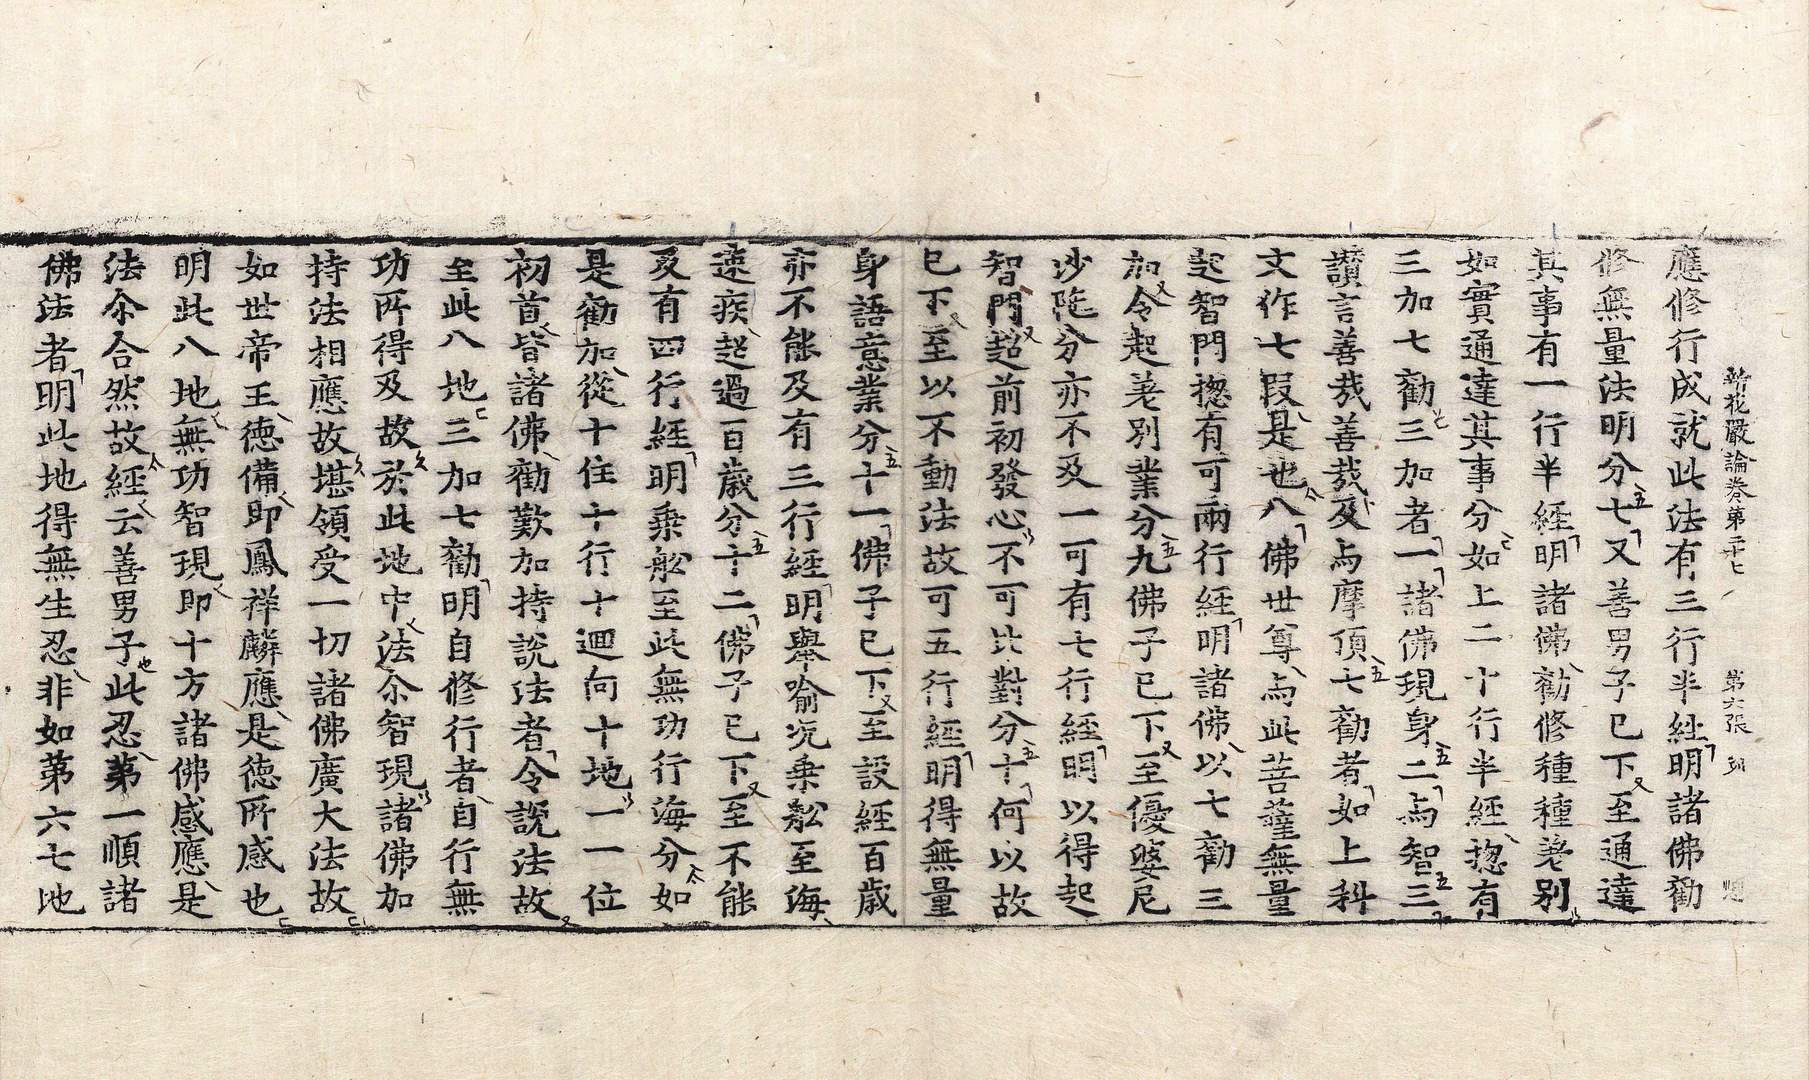 新花嚴論卷第二十七 第六張
應修行成就此法有三行半経明諸佛勸
修無量法明分七又善男子已下至通達
其事有一行半経明諸佛勸修種種差別
如實通達其事分如上二十行半経揔有
三加七勸三加者一諸佛現身二与智三
讚言善㢤善㢤及与摩頂七勸者如上科
文作七段是也八佛世尊与此菩薩無量
起智門揔有可兩行経明諸佛以七勸三
加令起差別業分九佛子已下至優婆尼
沙陁分亦不及一可有七行経明以得起
智門超前初發心不可比對分十何以故
已下至以不動法故可五行経明得無量
身語意業分十一佛子已下至設経百歳
亦不能及有三行経明舉喻況乗舩至海
速疾起過百歳分十二佛子已下至不能
及有四行経明乗舩至此無功行海分如
是勸加從十住十行十迴向十地一一位
初首皆諸佛勸歎加持說法者令說法故
至此八地三加七勸明自修行者自行無
功所得及故於此地中法尒智現諸佛加
持法相應故堪領受一切諸佛廣大法故
如世帝王徳備即鳳祥麟應是徳所感也
明此八地無功智現即十方諸佛感應是
法尒合然故経云善男子此忍第一順諸
佛法者明此地得無生忍非如第六七地